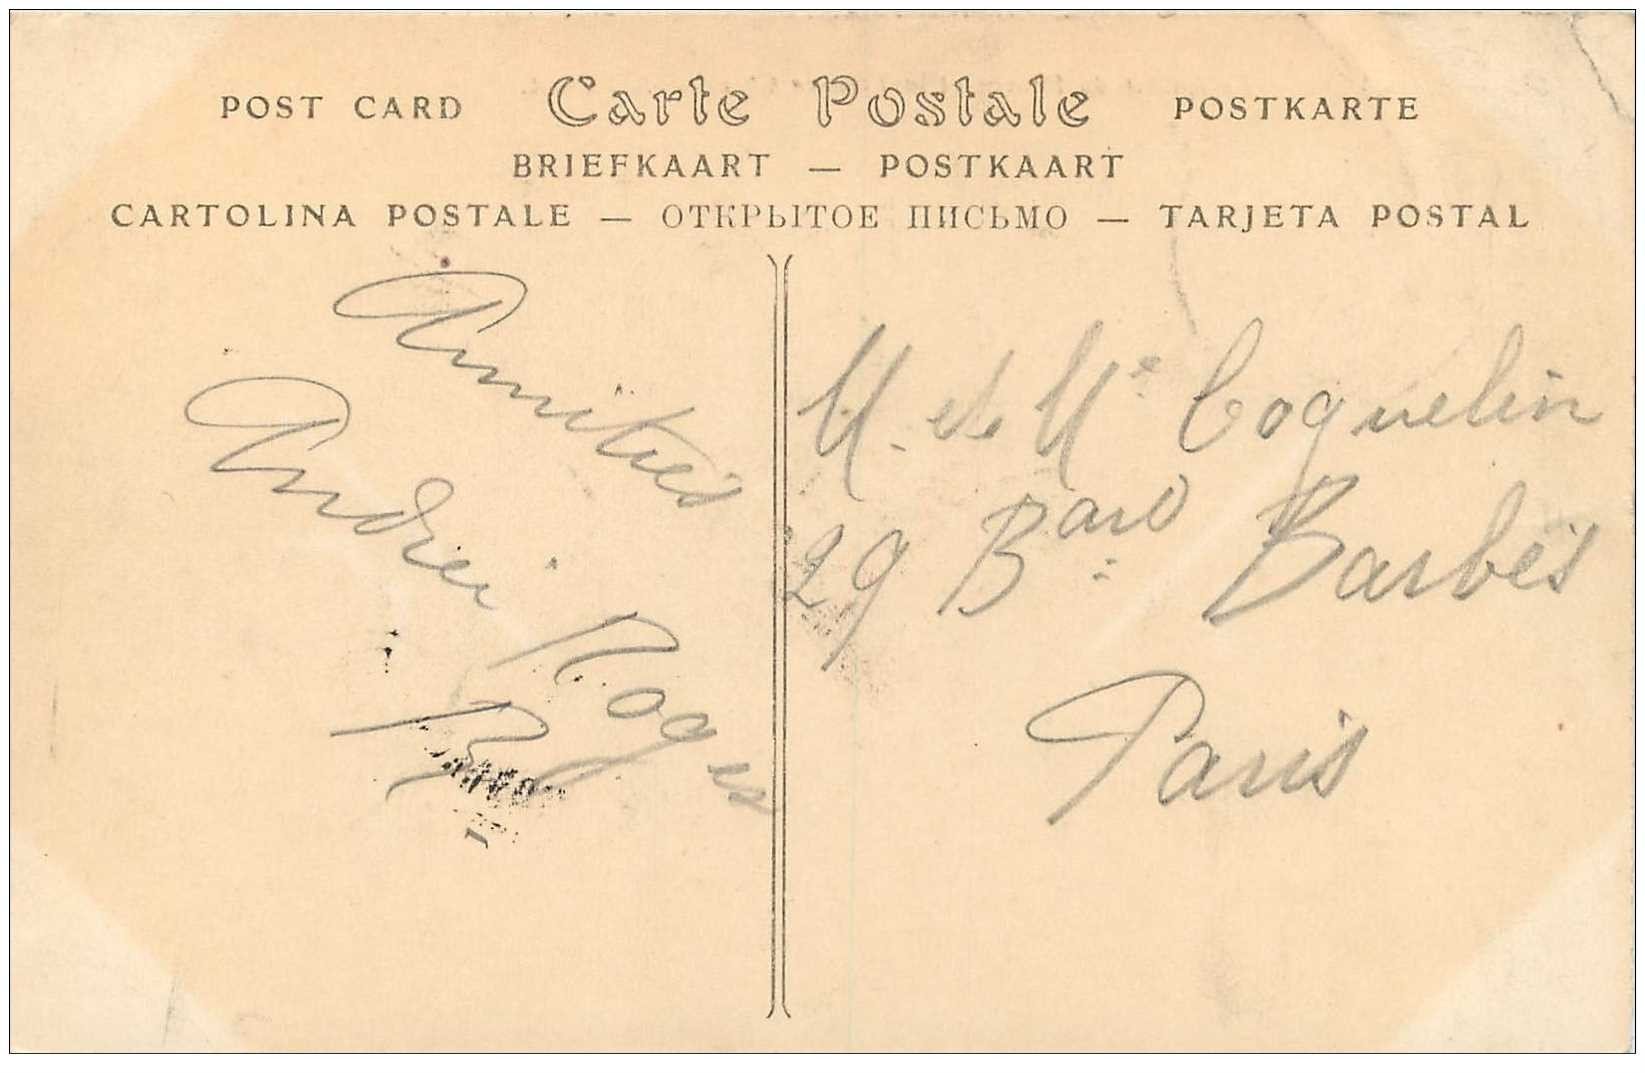 POST CARD Carte Postale POSTKARTE
BRIEFKAART — POSTKAART
CARTOLINA POSTALE — ОТКРЫТОЕ ПИСЬМО — TARJETA POSTAL
Amitiés
André
Roger
M. et Me Coquelin
29 Bard Barbès
Paris